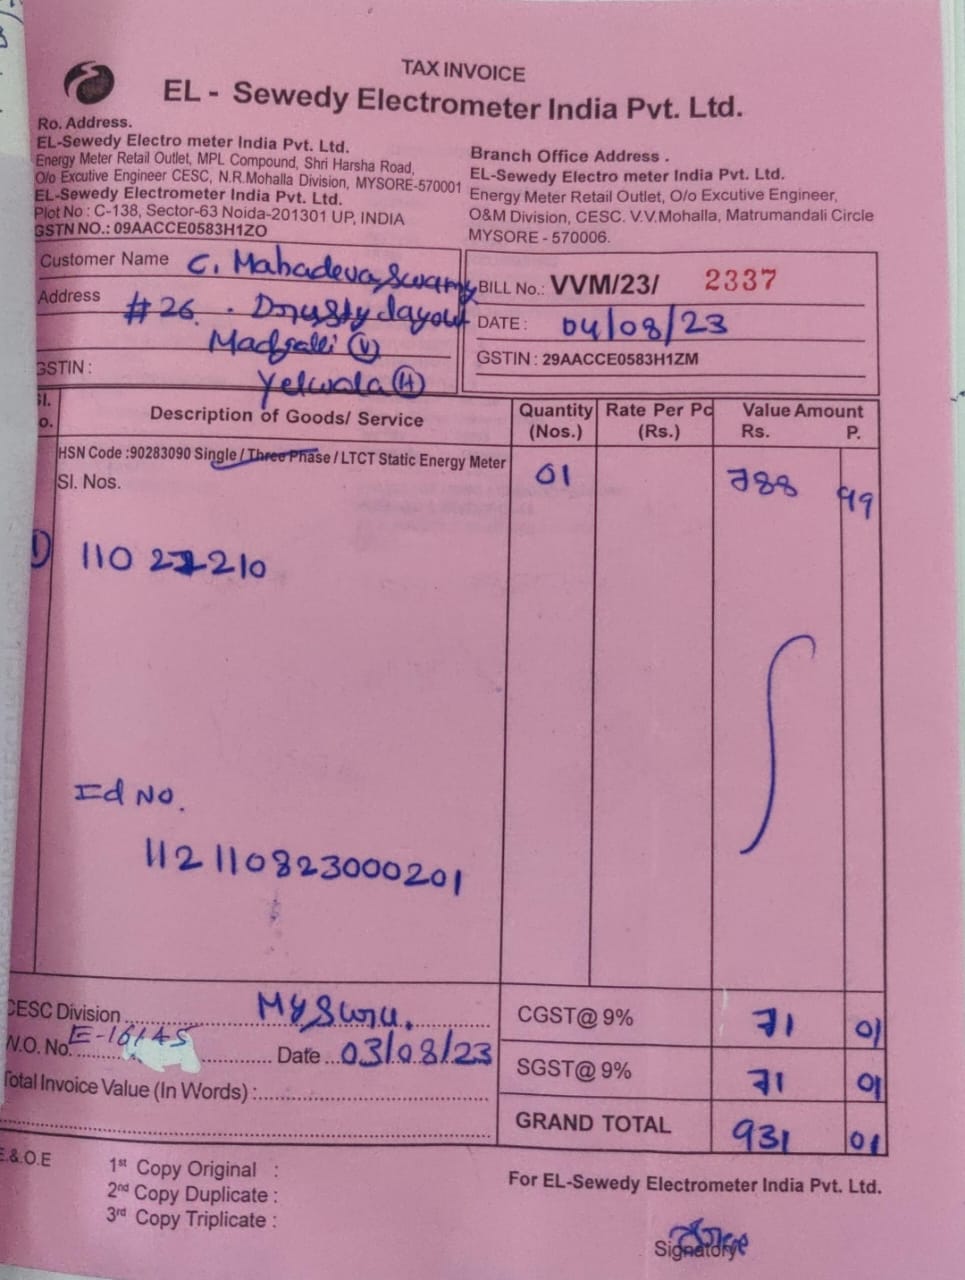 TAX INVOICE
EL - Sewedy Electrometer India Pvt. Ltd.
Ro. Address.
EL-Sewedy Electro meter India Pvt. Ltd.
Energy Meter Retail Outlet, MPL Compound, Shri Harsha Road,
O/o Excutive Engineer CESC, N.R.Mohalla Division, MYSORE-570001
EL-Sewedy Electrometer India Pvt. Ltd.
Plot No : C-138, Sector-63 Noida-201301 UP, INDIA
GSTN NO.: 09AACCE0583H1ZO
Branch Office Address .
EL-Sewedy Electro meter India Pvt. Ltd.
Energy Meter Retail Outlet, O/o Excutive Engineer,
O&M Division, CESC. V.V.Mohalla, Matrumandali Circle
MYSORE - 570006.
Customer Name C. Mahadevaswamy
Address #26.
GSTIN : Yelwala (H)
BILL No.: VVM/23/ 2337
DATE : 04/08/23
GSTIN : 29AACCE0583H1ZM
Sl. No. Description of Goods/ Service Quantity (Nos.) Rate Per Pc (Rs.) Value Amount Rs. P.
HSN Code :90283090 Single / Three Phase / LTCT Static Energy Meter 01 788 99
Sl. Nos.
1)
Id No.
112110823000201
CESC Division Mysuru.
W.O. No. Date 03/08/23
Total Invoice Value (In Words) :
CGST@ 9% 71 01
SGST@ 9% 71 01
GRAND TOTAL 931 01
E.&.O.E
1st Copy Original :
2nd Copy Duplicate :
3rd Copy Triplicate :
For EL-Sewedy Electrometer India Pvt. Ltd.
Signatory